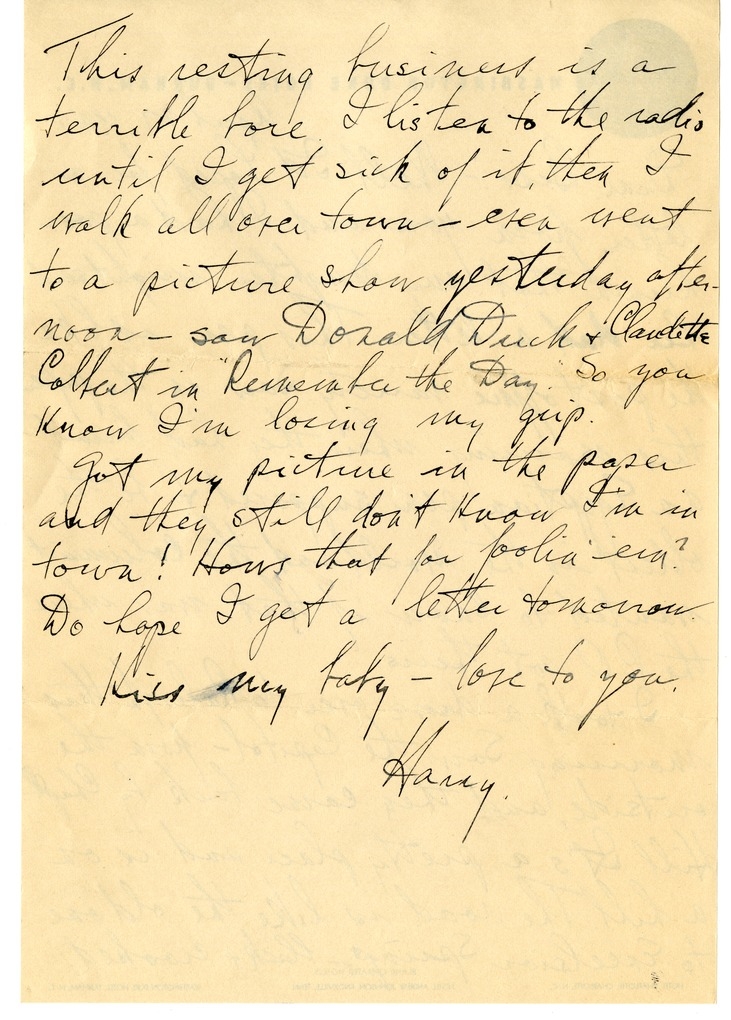 This resting business is a
terrible bore. I listen to the radio
until I get sick of it, then I
walk all over town – even went
to a picture show yesterday after-
noon – saw Donald Duck & Claudette
Colbert in "Remember the Day." So you
know I'm losing my grip.
Got my picture in the paper
and they still don't know I'm in
town! Hows that for foolin' 'em?
Do hope I get a letter tomorrow.
Kiss my baby – love to you.
Harry.